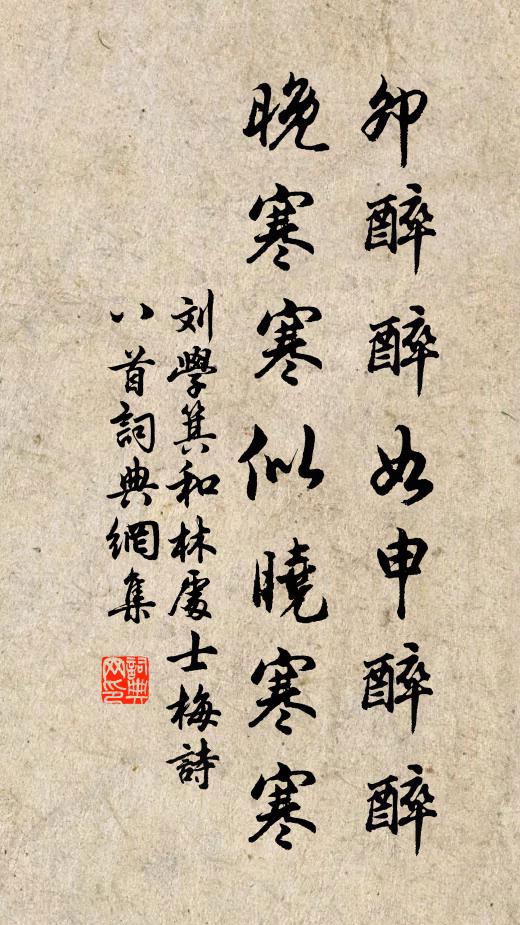 卯醉醉如申醉醉
晚寒寒似曉寒寒
刘學箕和林處士梅詩
八首詞典網集
詞典网印